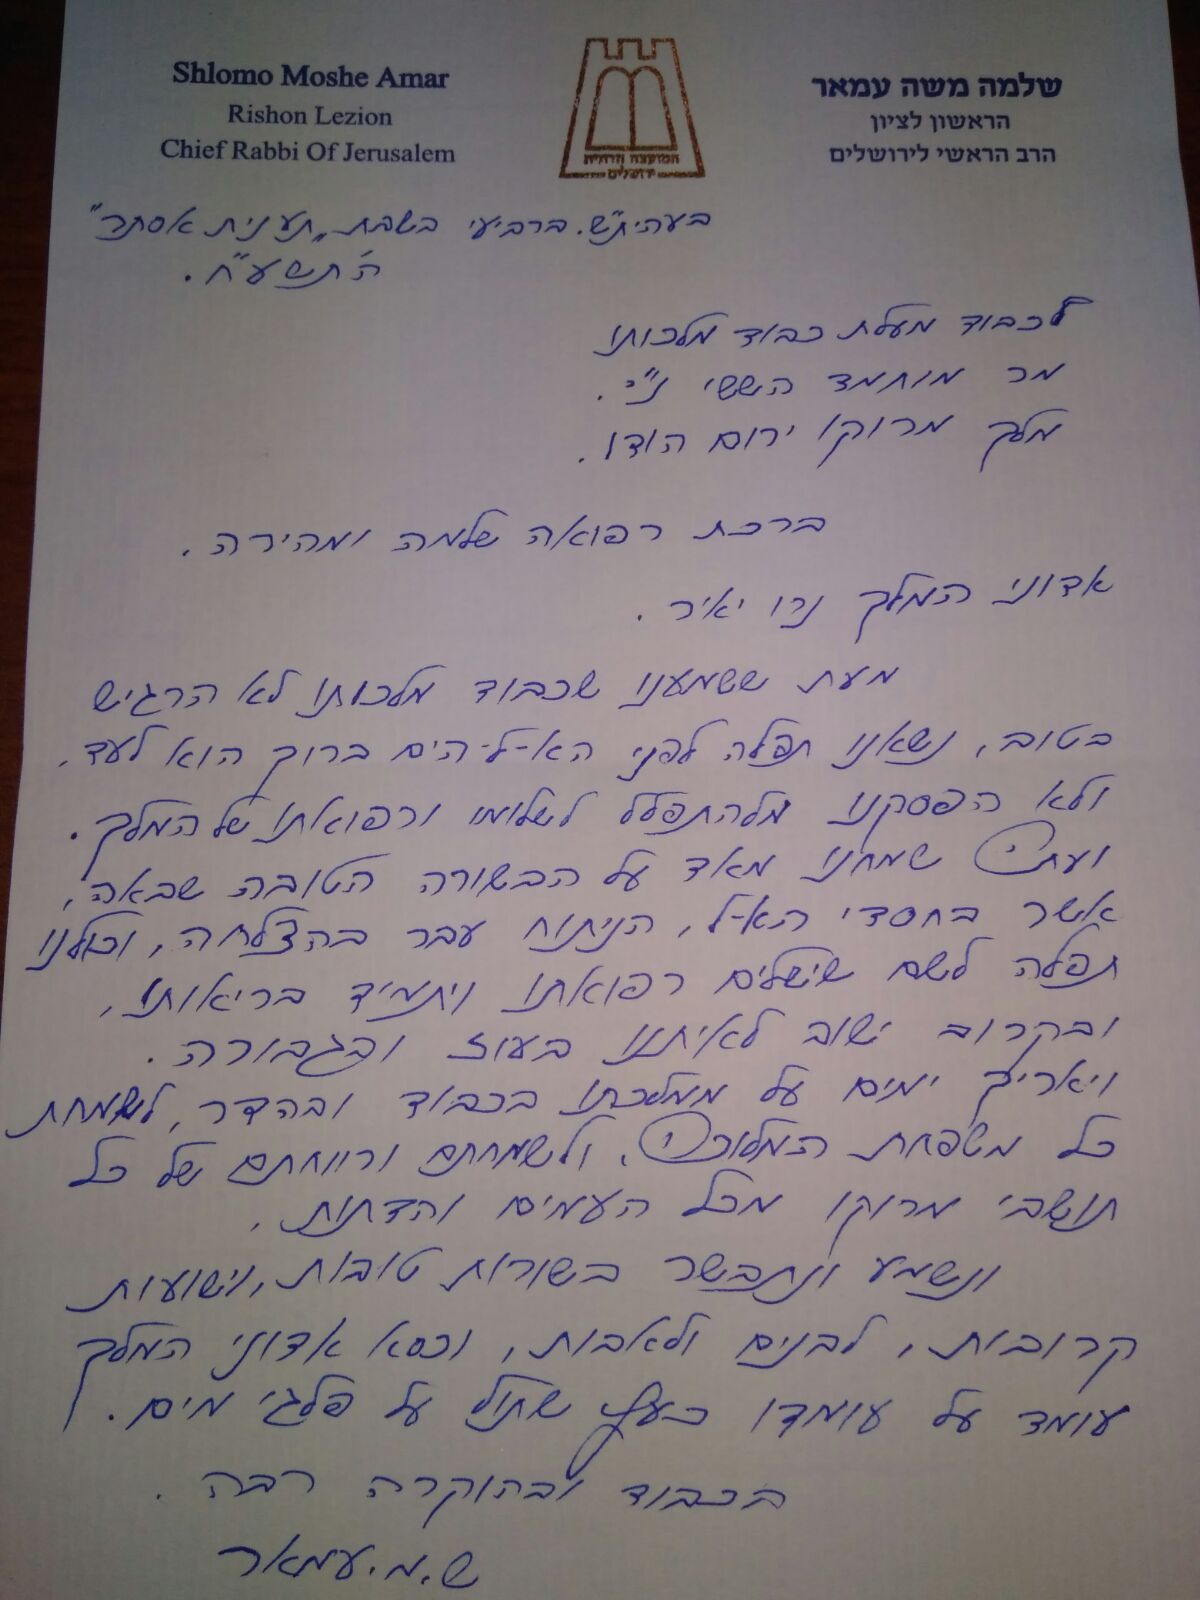 Shlomo Moshe Amar
Rishon Lezion
Chief Rabbi Of Jerusalem
שלמה משה עמאר
הראשון לציון
הרב הראשי לירושלים
המועצה הדתית
ירושלים
בעהית"ש. ברביעי בשבת "תענית אסתר"
ה'תשע"ח.
לכבוד מעלת כבוד מלכותו
מר מוחמד הששי נ"י.
מלך מרוקו ירום הודו.
ברכת רפואה שלמה ומהירה.
אדוני המלך נרו יאיר.
מעת ששמענו שכבוד מלכותו לא הרגיש
בטוב, נשאנו תפלה לפני הא-ל-הים ברוך הוא לעד.
ולא הפסקנו מלהתפלל לשלומו ורפואתו של המלך.
ועתה שמחנו מאד על הבשורה הטובה שבאה,
אשר בחסדי הא-ל, הניתוח עבר בהצלחה, וכולנו
תפלה לשם שישלים רפואתו ויתמיד בריאותו,
ובקרוב ישוב לאיתנו בעוז ובגבורה.
ויאריך ימים על ממלכתו בכבוד ובהדר, לשמחת
כל משפחת המלוכה, ולשמחתם ורווחתם של כל
תושבי מרוקו מכל העמים והדתות.
ונשמע ונתבשר בשורות טובות, וישועות
קרובות, לבנים ולאבות, וכסא אדוני המלך
עומד על עומדו כעץ שתול על פלגי מים.
בכבוד ובהוקרה רבה.
ש.מ.עמאר